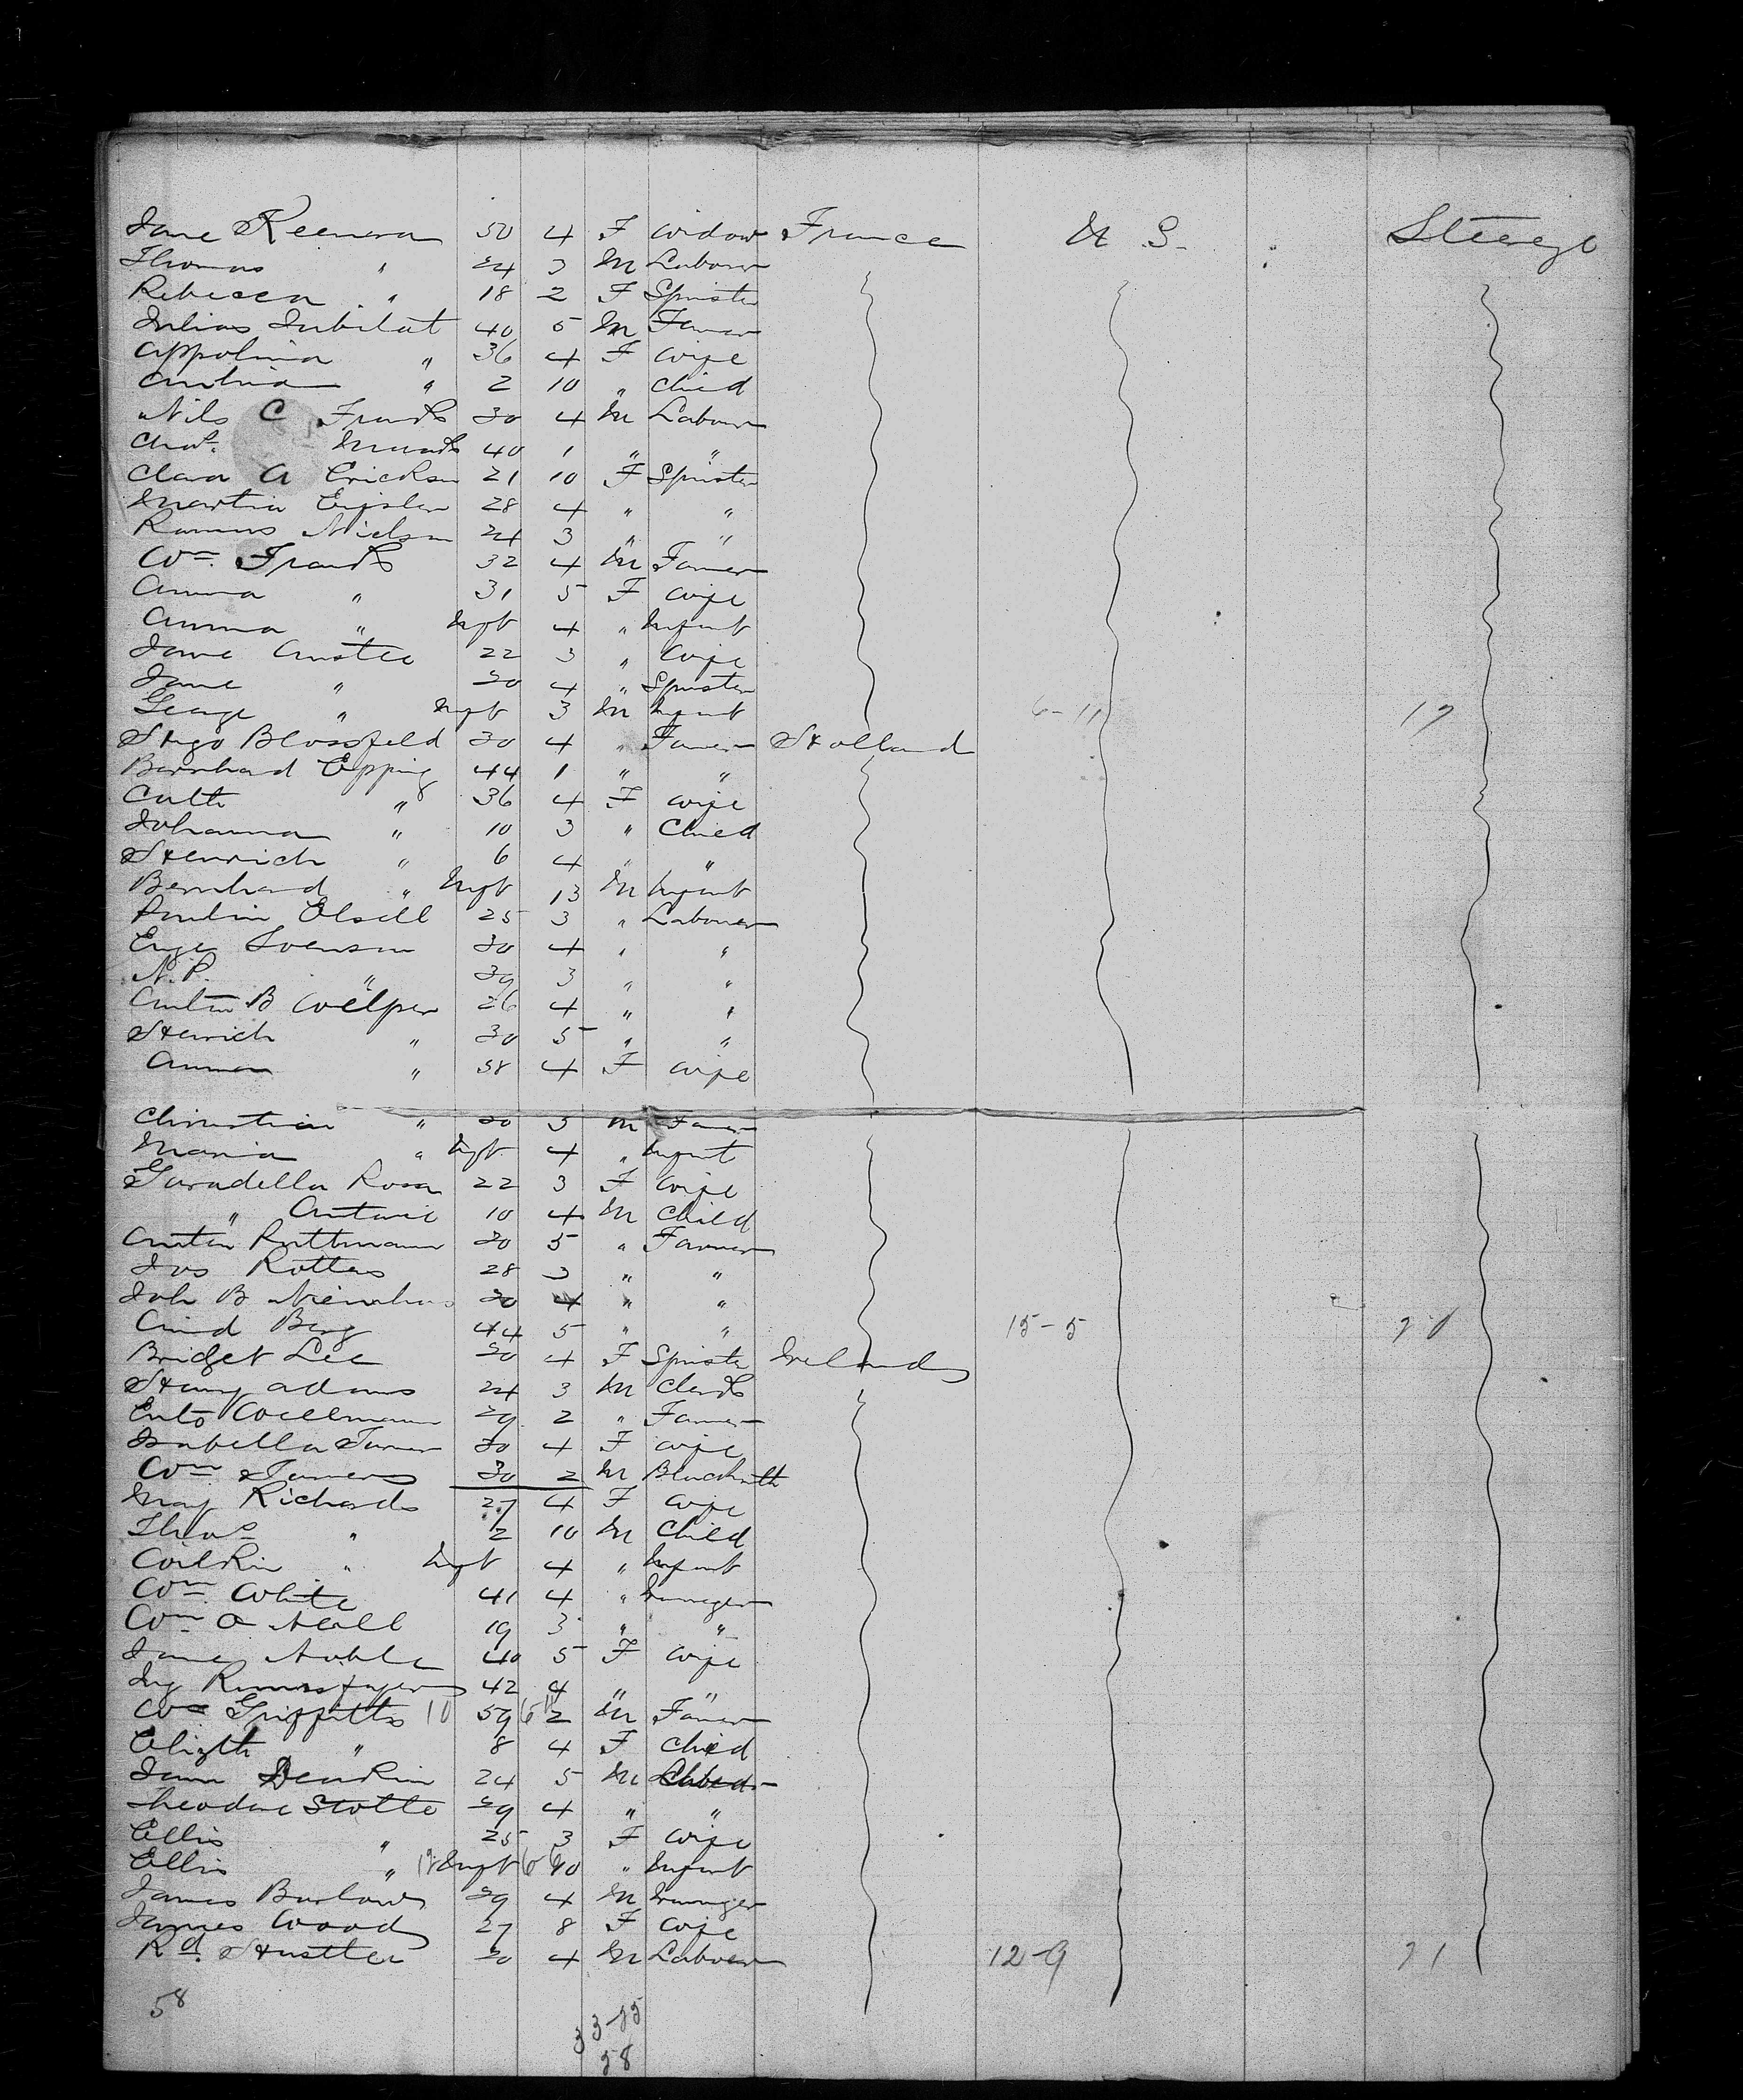 Jane Keenera 50 4 F Widow France U S. Steerage
Thomas " 24 3 M Labourer
Rebecca " 18 2 F Spinster
Julius Jubilat 40 5 M Farmer
Appolina " 36 4 F Wife
" 2 10 " Child
Nils C Frank 30 4 M Labourer
Chas. 40 1 " "
Clara A Erickson 21 10 F Spinster
Martin 28 4 " "
Rasmus Nielson 24 3 " "
Wm Frank 32 4 M Farmer
Anna " 31 5 F Wife
Anna " Inft 4 " Infant
Jane Anstee 22 3 " Wife
Jane " 20 4 " Spinster
George " Inft 3 M Infant 6-11 17
Hugo Blossfeld 30 4 " Farmer Holland
Bernhard Epping 44 1 " "
Cath " 36 4 F Wife
Johanna " 10 3 " Child
Henrich " 6 4 " "
Bernhard " Inft 13 M Infant
Paulin Elsell 25 3 " Labourer
Svenson 30 4 " "
N. P. " 39 3 " "
Anton B Woelper 26 4 " "
Henrich " 30 5 " "
Anna " 38 4 F Wife
Christian " 30 5 M Farmer
Maria " Inft 4 " Infant
Garadella Rosa 22 3 F Wife
" Antonie 10 4 M Child
Anton Ruttmann 30 5 " Farmer
Jos Rotters 28 3 " "
Joh B Nienhaus 30 4 " "
Berg 44 5 " " 15-5 20
Bridget Lee 20 4 F Spinster Ireland
Henry Adams 24 3 M Clerk
Wellmann 29 2 " Farmer
Isabella Turner 30 4 F Wife
Wm 30 2 M Blacksmith
May Richards 27 4 F Wife
Thos " 2 10 M Child
" Inft 4 " Infant
Wm White 41 4 "
Wm O Neill 19 3 " "
Jane Noble 40 5 F Wife
42 4 " "
Wm Griffitts 10 59 6 11 2 M Farmer
Elizth " 8 4 F Child
Deakin 24 5 M
Theodore Stolte 29 4 " "
Ellis " 25 3 F Wife
Ellis " Inft 10 " Infant
James Barlow 29 4 M
James Wood 27 8 F Wife
Rd. Hustler 20 4 M Labourer 12-9 21
58
33-25
28